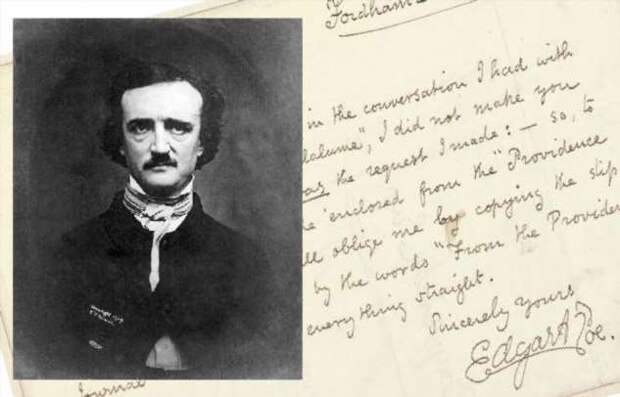 Fordham
in the conversation I had with
lalume", I did not make you
as the request I made: — so, to
e enclosed from the "Providence
ll oblige me by copying the slip
by the words "From the Providen
everything straight.
Sincerely yours
Edgar A Poe.
Journal